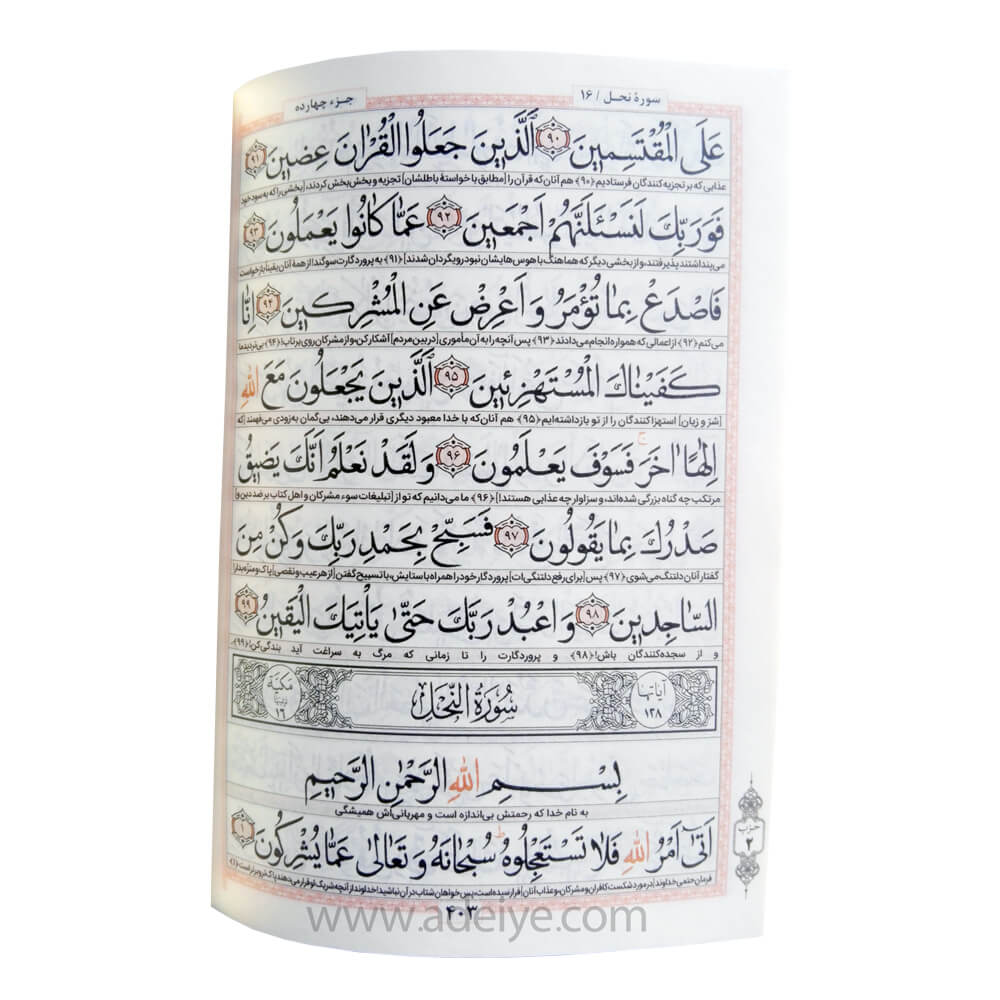 سورهٔ نحل / ۱۶
جزء چهارده
عَلَى الْمُقْتَسِمِينَ ﴿۹۰﴾ اَلَّذِينَ جَعَلُوا الْقُرْاٰنَ عِضِينَ ﴿۹۱﴾
عذابی که بر تجزیه کنندگان فرستادیم﴿۹۰﴾ هم آنان که قرآن را [مطابق با خواستهٔ باطلشان] تجزیه و بخش بخش کردند، [بخشی را که به سود خود
فَوَرَبِّكَ لَنَسْئَلَنَّهُمْ اَجْمَعِينَ ﴿۹۲﴾ عَمَّا كَانُوا يَعْمَلُونَ ﴿۹۳﴾
می‌پنداشتند پذیرفتند، و از بخشی دیگر که هماهنگ با هوس‌هایشان نبود رویگردان شدند]﴿۹۱﴾ به پروردگارت سوگند! از همهٔ آنان یقیناً بازخواست
فَاصْدَعْ بِمَا تُؤْمَرُ وَ اَعْرِضْ عَنِ الْمُشْرِكِينَ ﴿۹۴﴾ اِنَّا
می‌کنم﴿۹۲﴾ از اعمالی که همواره انجام می‌دادند﴿۹۳﴾ پس آنچه را به آن مأموری [در بین مردم] آشکار کن، و از مشرکان روی برتاب!﴿۹۴﴾ بی‌تردید ما
كَفَيْنَاكَ الْمُسْتَهْزِئِينَ ﴿۹۵﴾ اَلَّذِينَ يَجْعَلُونَ مَعَ اللهِ
[شرّ و زیان] استهزاکنندگان را از تو بازداشته‌ایم﴿۹۵﴾ هم آنان که با خدا معبود دیگری قرار می‌دهند، بی‌گمان به زودی می‌فهمند [که
اِلٰهًا اٰخَرَ ۚ فَسَوْفَ يَعْلَمُونَ ﴿۹۶﴾ وَ لَقَدْ نَعْلَمُ اَنَّكَ يَضِيقُ
مرتکب چه گناه بزرگی شده‌اند، و سزاوار چه عذابی هستند!]﴿۹۶﴾ ما می‌دانیم که تو از [تبلیغات سوء مشرکان و اهل کتاب بر ضد دین و]
صَدْرُكَ بِمَا يَقُولُونَ ﴿۹۷﴾ فَسَبِّحْ بِحَمْدِ رَبِّكَ وَ كُنْ مِنَ
گفتار آنان دلتنگ می‌شوی﴿۹۷﴾ پس [برای رفع دلتنگی‌ات] پروردگار خود را همراه با ستایش، با تسبیح گفتن [از هر عیب و نقصی] پاک و منزّه بدار!
السَّاجِدِينَ ﴿۹۸﴾ وَ اعْبُدْ رَبَّكَ حَتّٰى يَأْتِيَكَ الْيَقِينُ ﴿۹۹﴾
و از سجده‌کنندگان باش!﴿۹۸﴾ و پروردگارت را تا زمانی که مرگ به سراغت آید بندگی کن!﴿۹۹﴾
آیاتها ۱۲۸
سُورَةُ النَّحْلِ
مکیّة ۱۶
بِسْمِ اللهِ الرَّحْمٰنِ الرَّحِيمِ
به نام خدا که رحمتش بی‌اندازه است و مهربانی‌اش همیشگی
اَتٰى اَمْرُ اللهِ فَلَا تَسْتَعْجِلُوهُ سُبْحَانَهُ وَ تَعَالٰى عَمَّا يُشْرِكُونَ ﴿۱﴾
فرمان حتمی خداوند [در مورد شکست کافران و مشرکان و عذاب آنان] فرا رسیده است، پس خواهان شتاب در آن نباشید! خداوند از آنچه شریک او قرار می‌دهند پاک و برتر است﴿۱﴾
حزب ۲
۴۰۳
www.adeiye.com